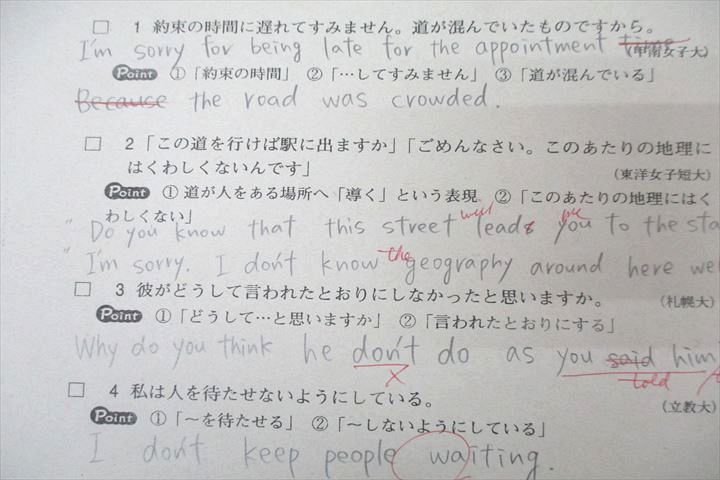 □ 1 約束の時間に遅れてすみません。道が混んでいたものですから。
I'm sorry for being late for the appointment time.
(甲南女子大)
Point ①「約束の時間」 ②「…してすみません」 ③「道が混んでいる」
Because the road was crowded.
□ 2「この道を行けば駅に出ますか」「ごめんなさい。このあたりの地理に
はくわしくないんです」 (東洋女子短大)
Point ① 道が人をある場所へ「導く」という表現 ②「このあたりの地理にはく
わしくない」
will me
"Do you know that this street leads you to the sta
the
"I'm sorry. I don't know geography around here wel
□ 3 彼がどうして言われたとおりにしなかったと思いますか。 (札幌大)
Point ①「どうして…と思いますか」 ②「言われたとおりにする」
Why do you think he don't do as you said him
× told
□ 4 私は人を待たせないようにしている。 (立教大)
Point ①「〜を待たせる」 ②「〜しないようにしている」
I don't keep people waiting.